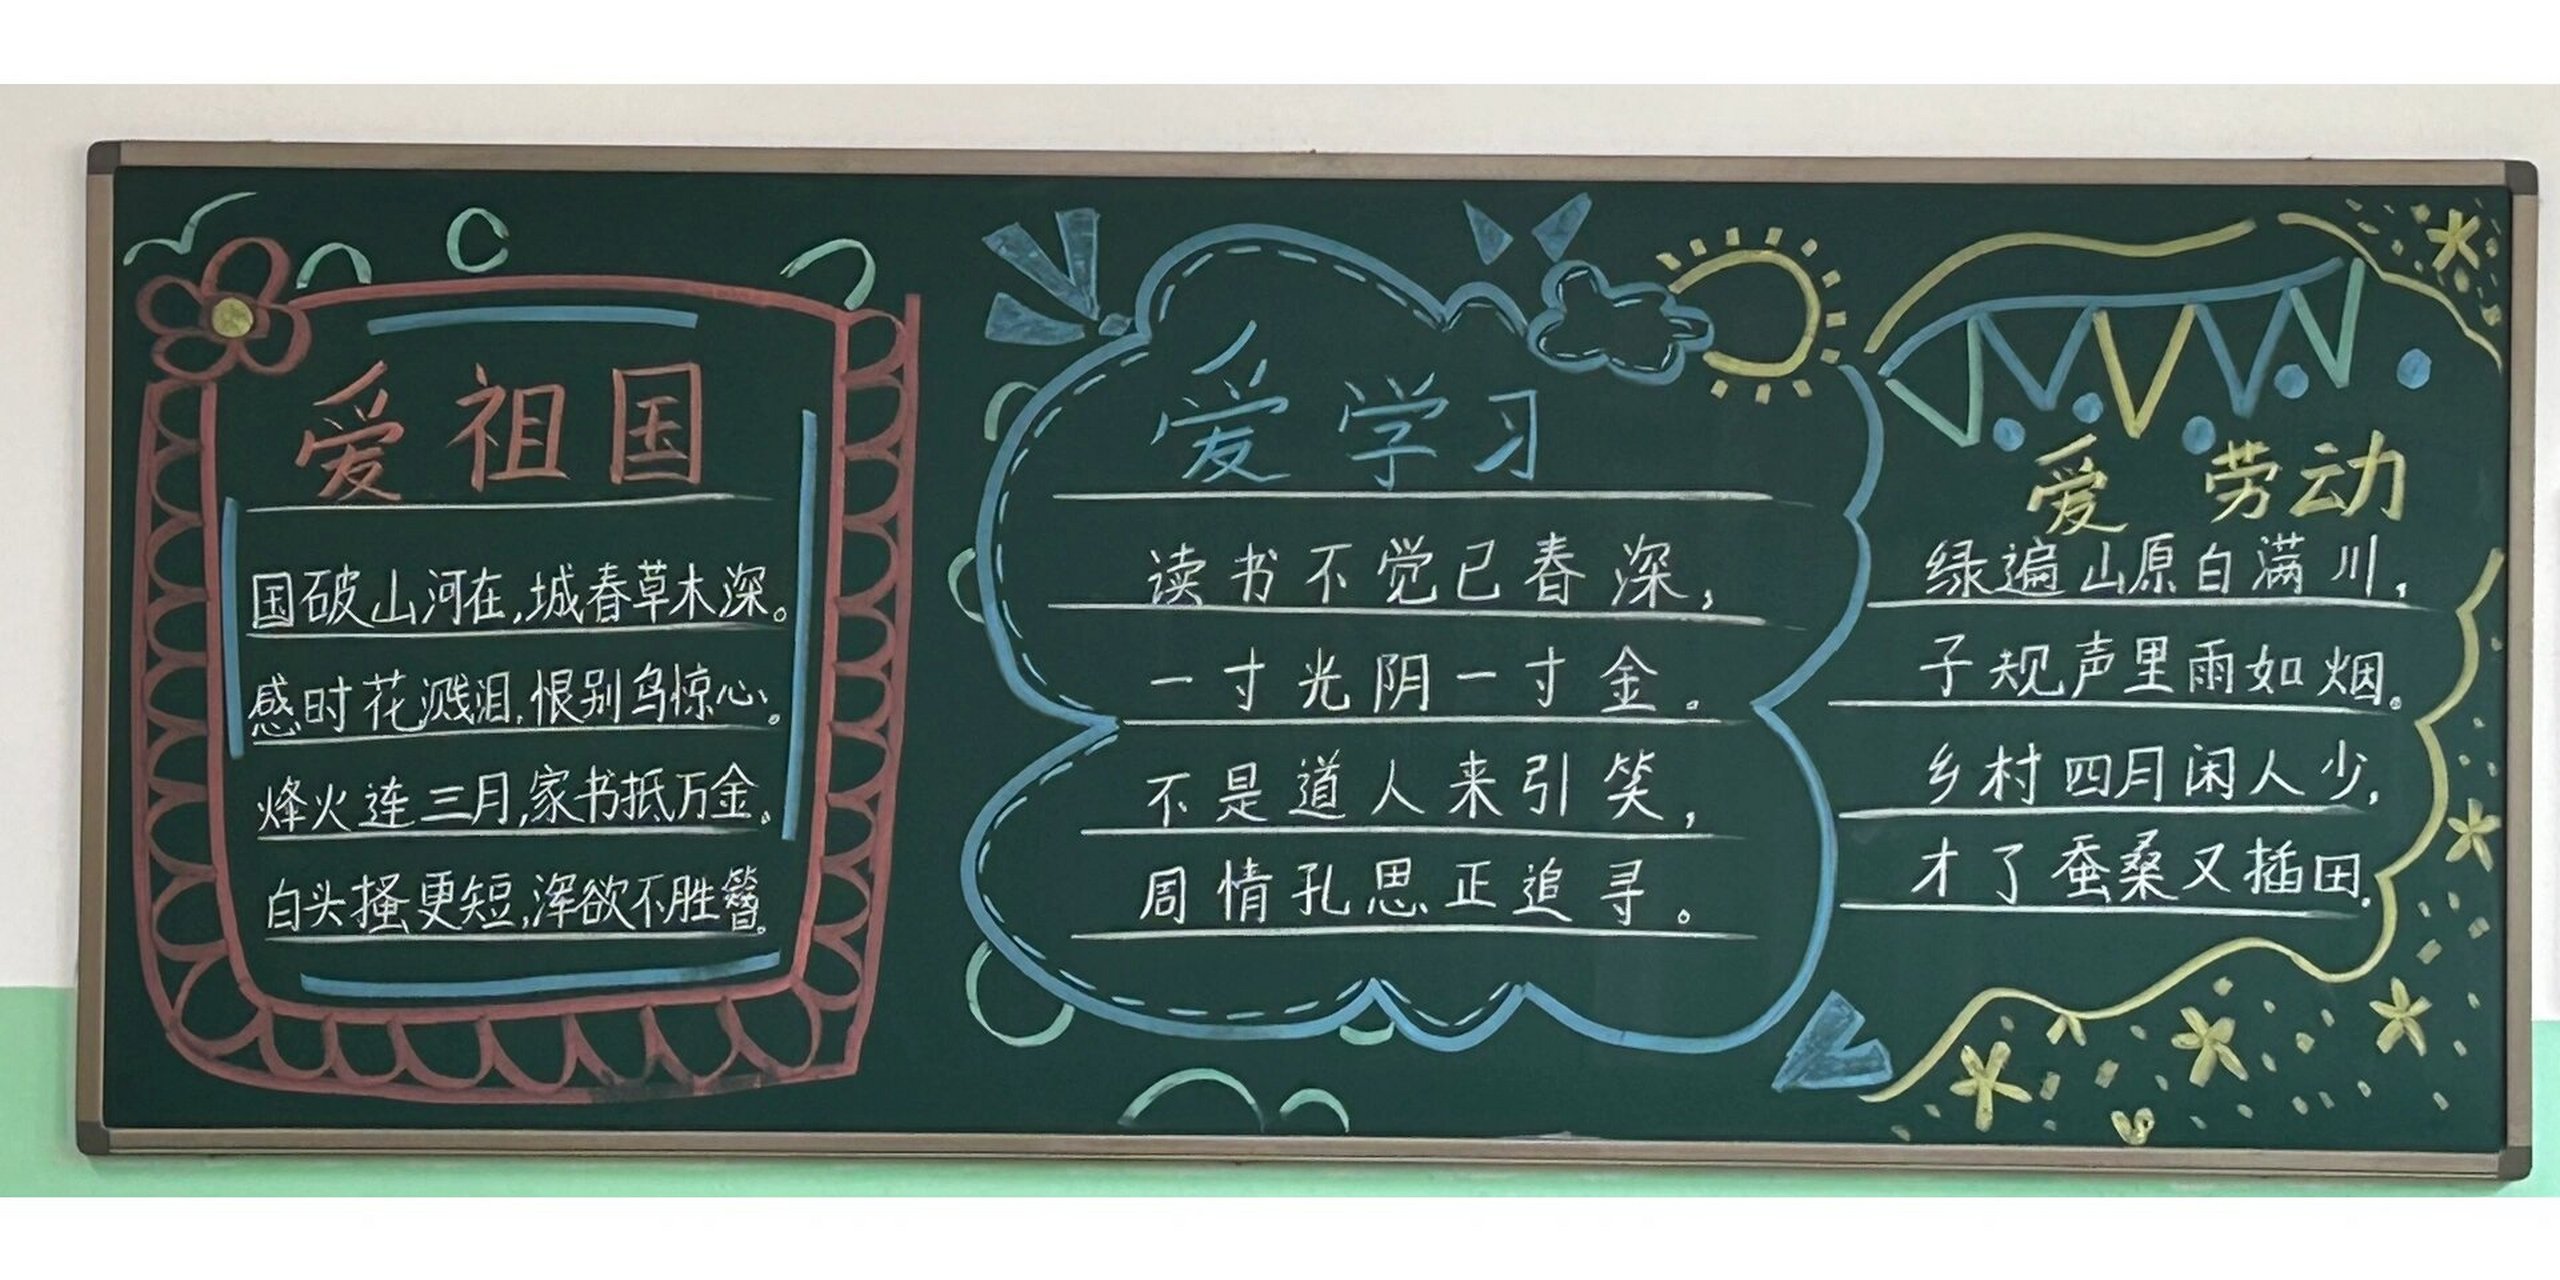 爱祖国
国破山河在,城春草木深。
感时花溅泪,恨别鸟惊心。
烽火连三月,家书抵万金。
白头搔更短,浑欲不胜簪。
爱学习
读书不觉已春深,
一寸光阴一寸金。
不是道人来引笑,
周情孔思正追寻。
爱劳动
绿遍山原白满川,
子规声里雨如烟。
乡村四月闲人少,
才了蚕桑又插田。